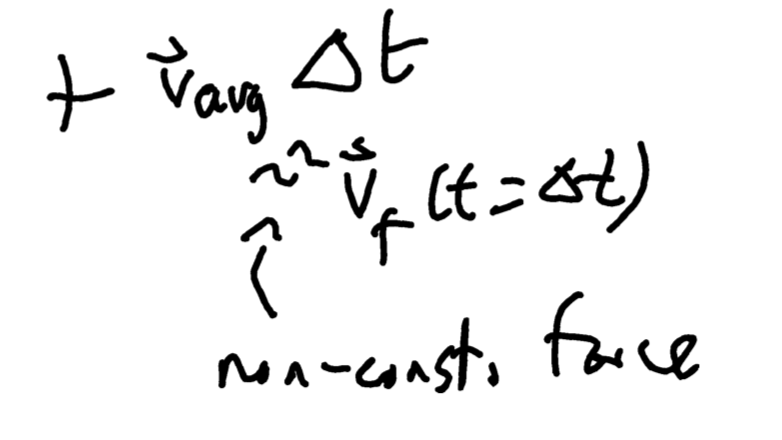 + v⃗avg Δt
≈ v⃗f (t = Δt)
non-const. force